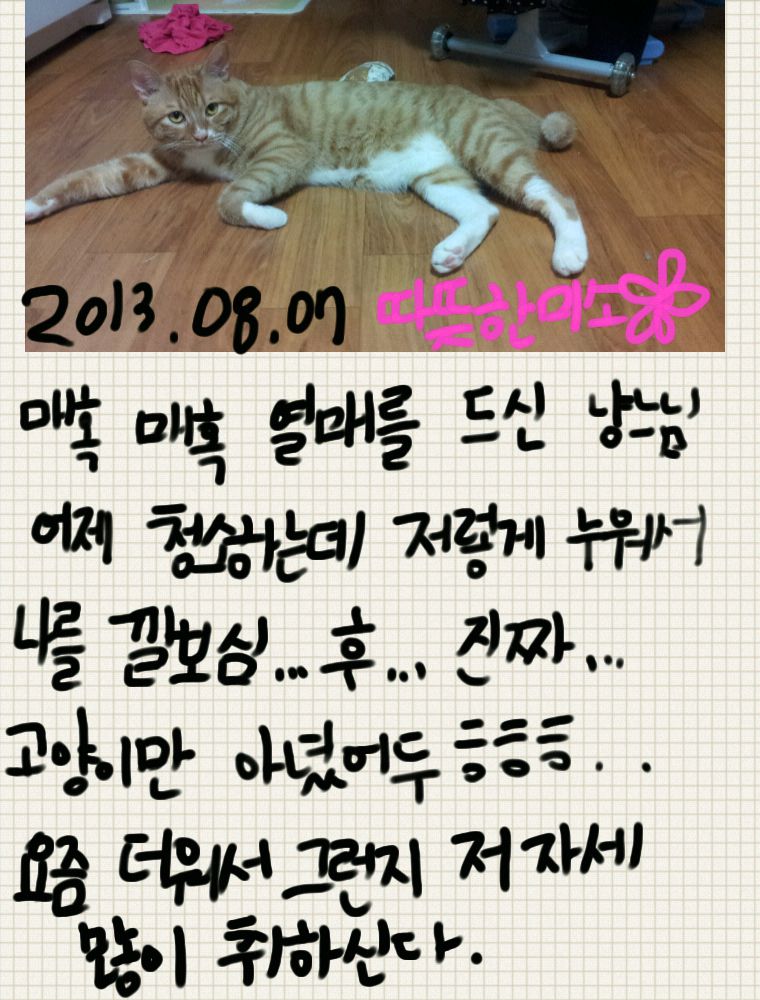 2013.08.07 따뜻한미소
매혹 매혹 열매를 드신 냥느님
어제 청소하는데 저렇게 누워서
나를 깔보심... 후... 진짜...
고양이만 아녔어두 흠흠흠. .
요즘 더워서 그런지 저 자세
많이 취하신다.